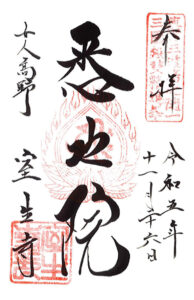 奉拝
令和五年
十一月二十六日
悉地院
女人高野
室生寺